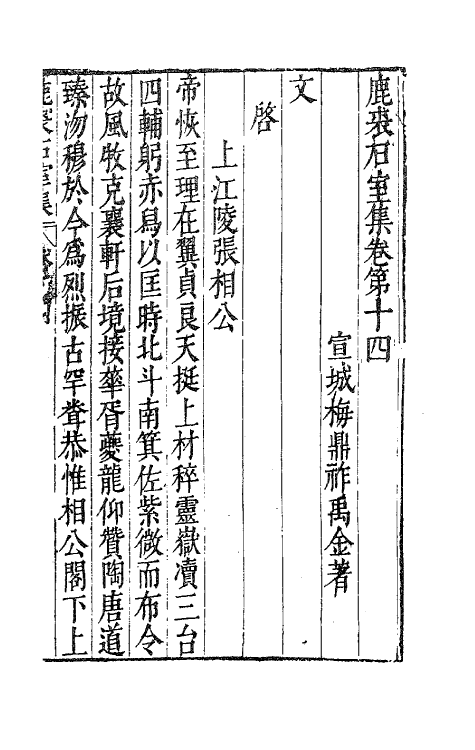 鹿裘石室集卷第十四
宣城梅鼎祚禹金著
文
啓
上江陵張相公
帝恢至理在翼貞良天挺上材稡靈嶽瀆三台
四輔躬赤舄以匡時北斗南箕佐紫微而布令
故風牧克襄軒后境接華胥夔龍仰贊陶唐道
臻沕穆於今爲烈振古罕聋恭惟相公閣下上
鹿裘石室集